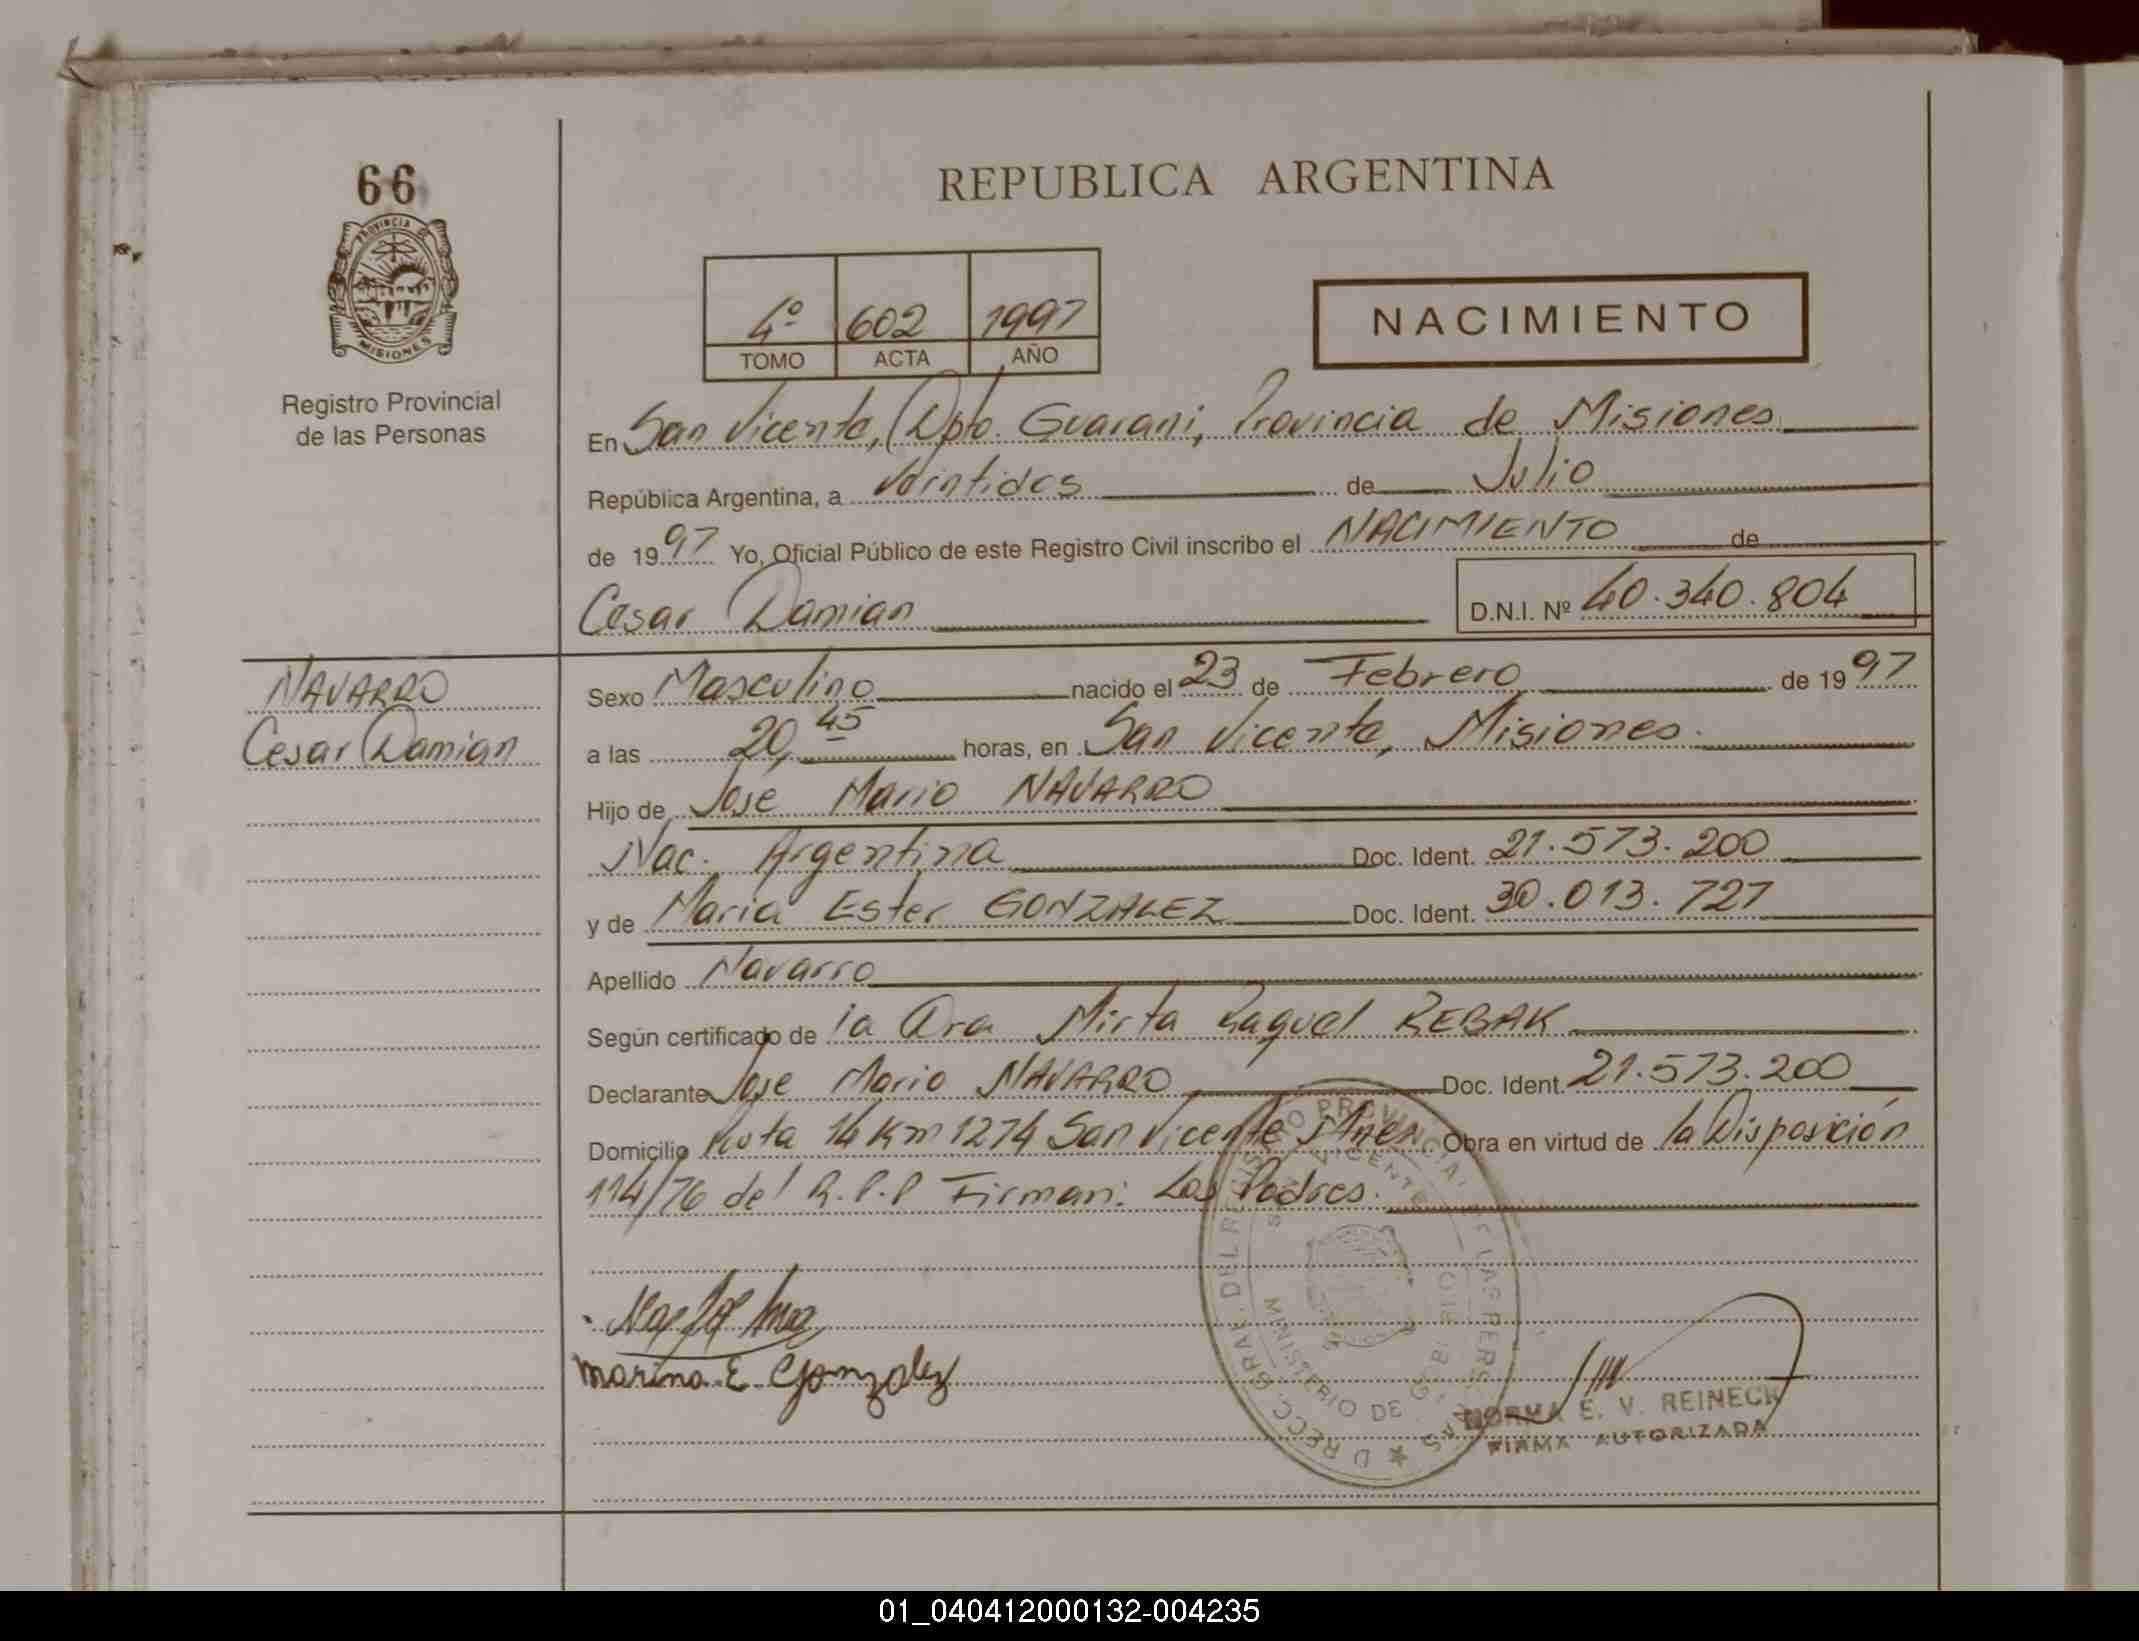 66
PROVINCIA DE
MISIONES
Registro Provincial
de las Personas
REPUBLICA ARGENTINA
4º 602 1997
TOMO ACTA AÑO
NACIMIENTO
En San Vicente, Dpto. Guarani, Provincia de Misiones
República Argentina, a Veintidos de Julio
de 1997 Yo, Oficial Público de este Registro Civil inscribo el NACIMIENTO de
Cesar Damian D.N.I. Nº 40.340.804
NAVARRO
Cesar Damian
Sexo Masculino nacido el 23 de Febrero de 1997
a las 20,45 horas, en San Vicente, Misiones.
Hijo de José Mario NAVARRO
Nac. Argentina Doc. Ident. 21.573.200
y de Maria Ester GONZALEZ Doc. Ident. 30.013.727
Apellido Navarro
Según certificado de la Dra Mirta Raquel REBAK
Declarante Jose Mario NAVARRO Doc. Ident. 21.573.200
Domicilio Ruta 14 Km 1274 San Vicente Mnes. Obra en virtud de la Disposición
114/76 del R.P.P Firman: Los Padres.
marina E. Gonzalez
SAN VICENTE
MINISTERIO DE
NORMA E. V. REINECK
FIRMA AUTORIZADA
01_040412000132-004235